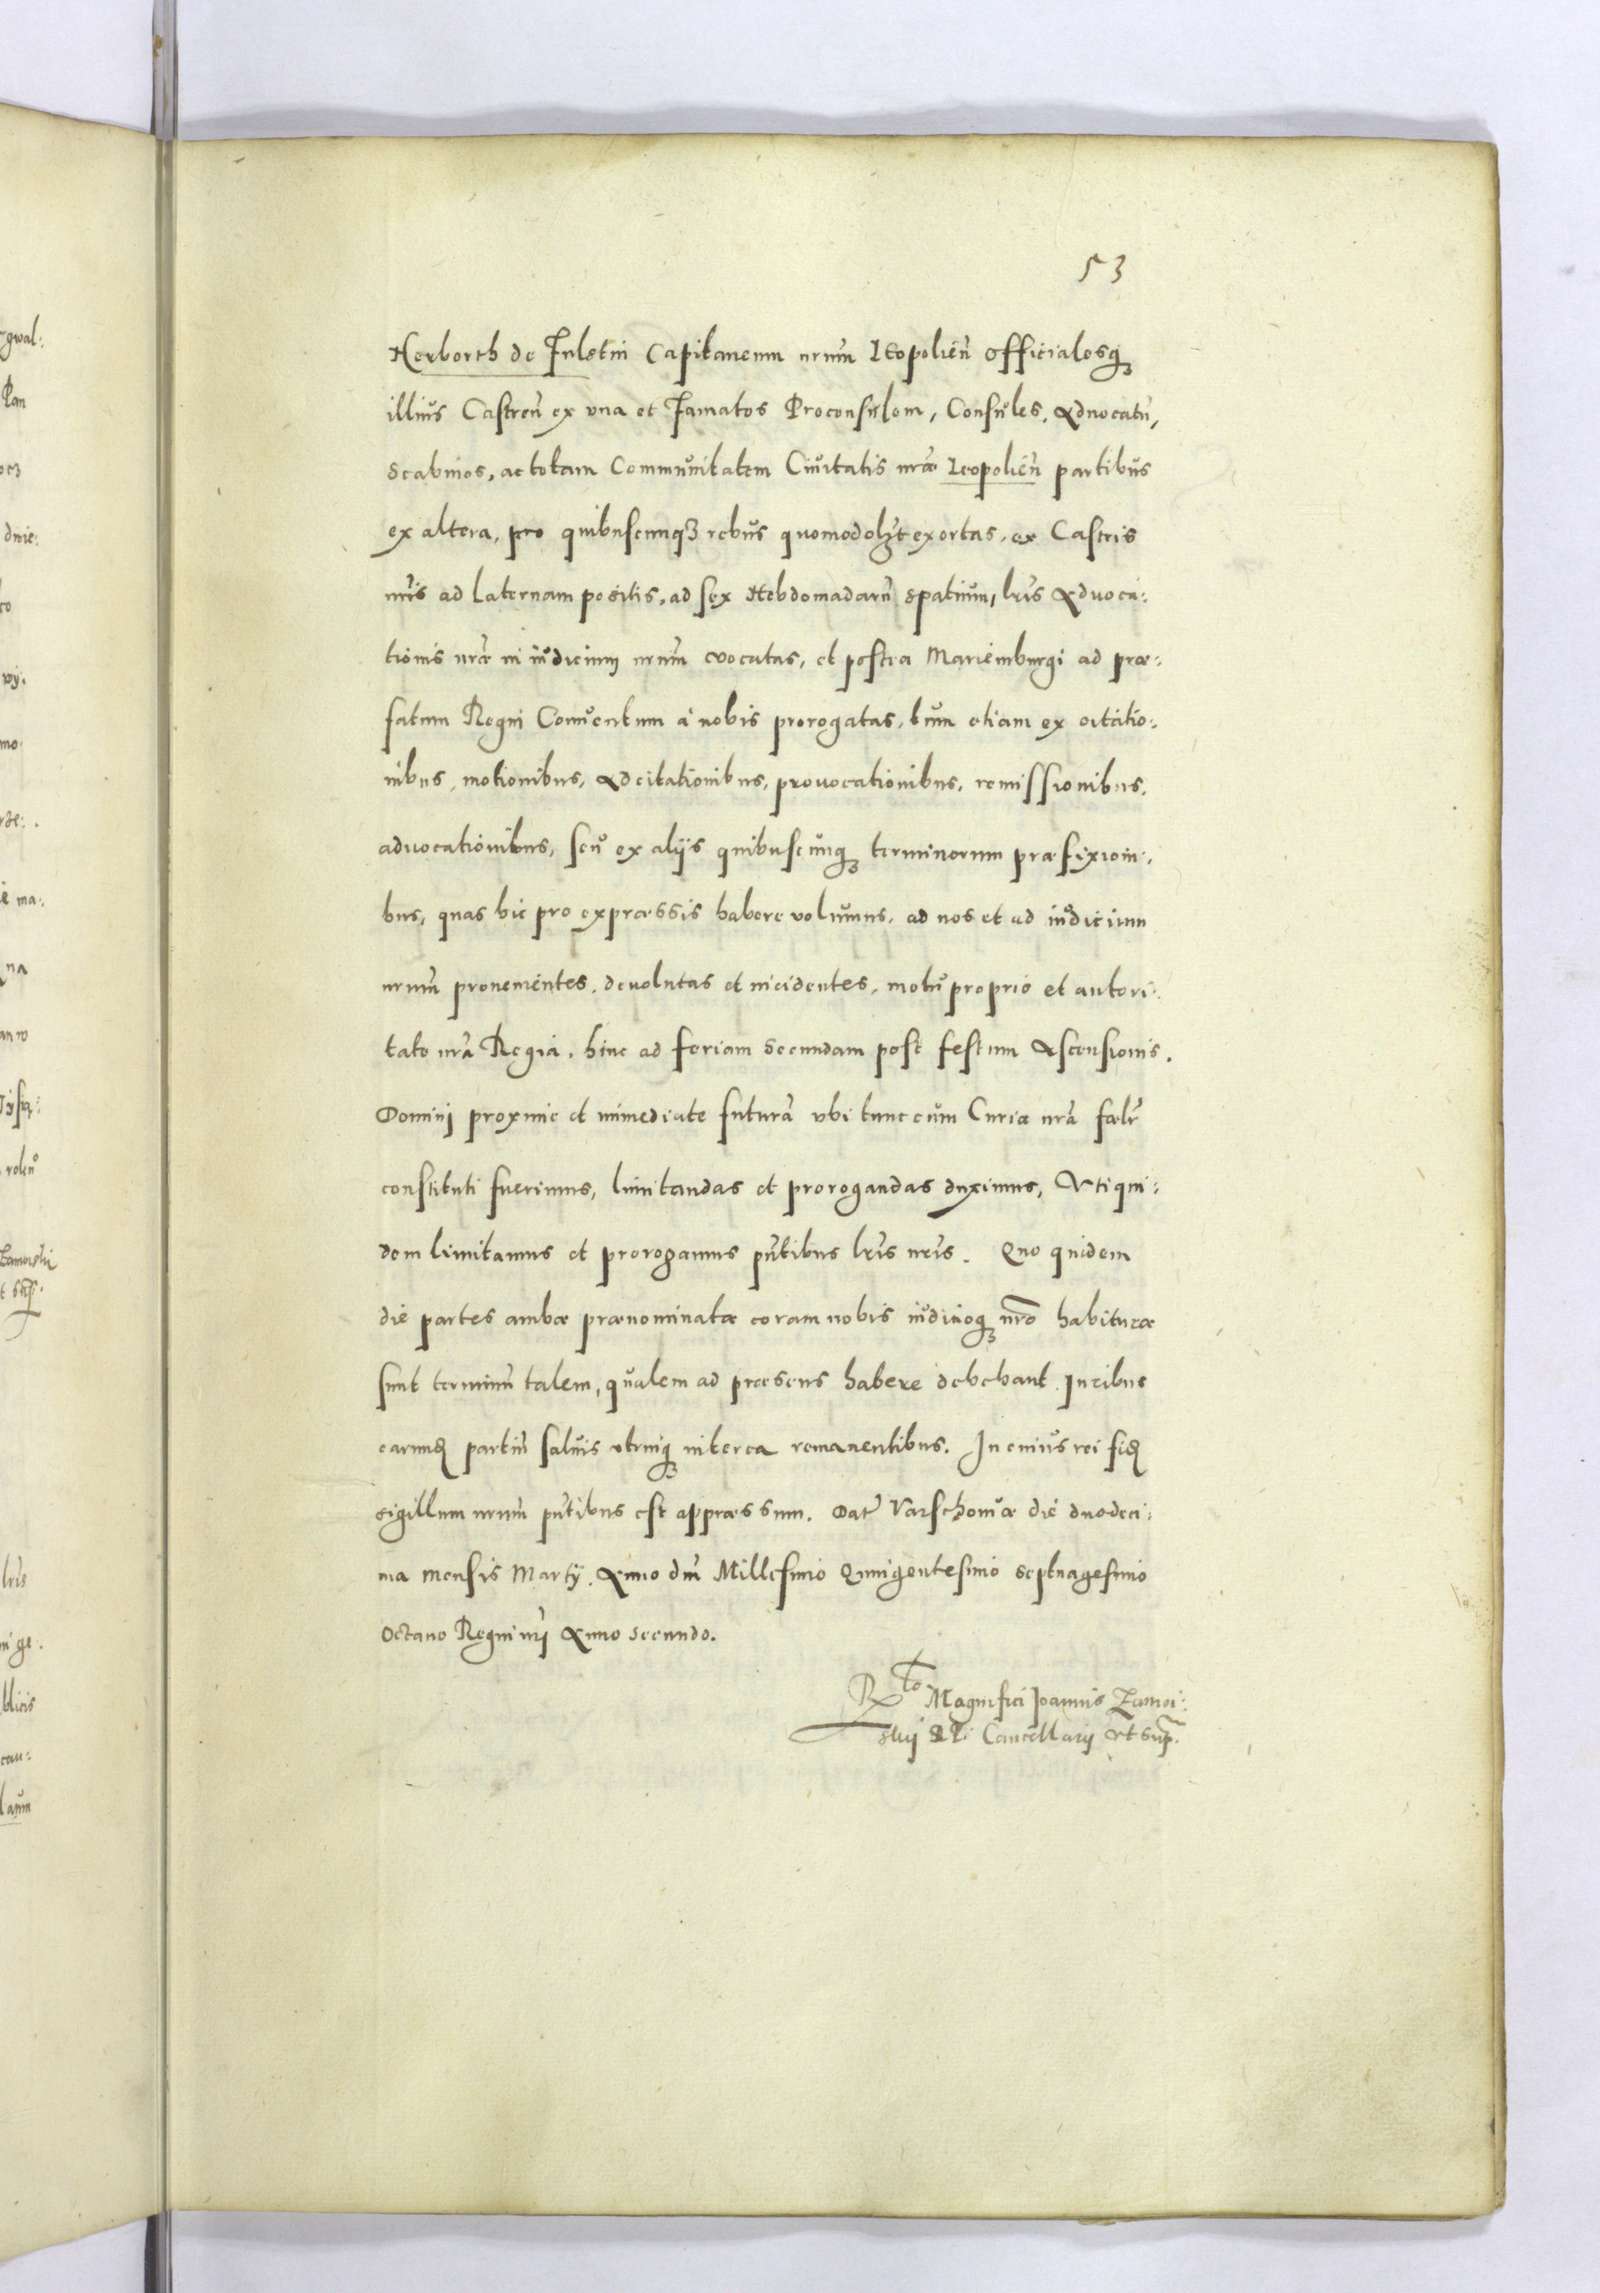 53
Herborth de Fulstin Capitaneum nrũm Leopolieñ Officialesq3
illius Castreñ ex vna et Famatos Proconsulem, Consules, Aduocatũ,
Scabinos, ac totam Communitatem Ciuitatis nrãe Leopolieñ partibus
ex altera, pro quibuscunq3 rebus quomodolz̃t exortas, ex Castris
nrĩs ad Laternam positis, ad sex Hebdomadarũ spatium, lrĩs Aduoca:
tionis nrãe in iudicium nrũm euocatas, et postea Mariemburgi ad præ:
fatum Regni Conuentum à nobis prorogatas, tum etiam ex citatio:
nibus, motionibus, Adcitationibus, prouocationibus, remissionibus,
aduocationibus, seu ex alijs quibuscunq3 terminorum præfixioni:
bus, quas hic pro expræssis habere volumus, ad nos et ad iudicium
nrũm prouenientes, deuolutas et incidentes, motu proprio et autori:
tate nrã Regia, hinc ad feriam Secundam post festum Ascensionis
Domini proxime et immediate futurã vbi tunc cum Curia nrã fœlr̃
constituti fuerimus, limitandas et prorogandas duximus, Vti qui:
dem limitamus et prorogamus pñtibus lrĩs nrĩs. Quo quidem
die partes ambæ prænominatæ coram nobis iudicioq3 nrõ habituræ
sunt terminũ talem, qualem ad præsens habere debebant. Iuribus
earund partiũ saluis vtrinq3 interea remanentibus. In cuius rei fid
sigillum nrũm pñtibus est appræssum. Dat̃ Varschouiæ die duodeci:
ma mensis Martij. Anno dnĩ Millesimo Quingentesimo Septuagesimo
Octauo Regni nrĩ Anno secundo.
Rto Magnifici Joannis Zamoi:
skij R P: Cancellarij vt sup̃.